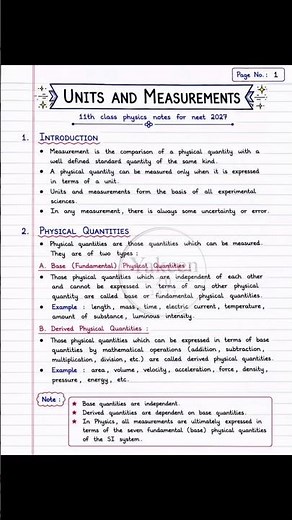 Page No. : 1
UNITS AND MEASUREMENTS
11th class physics notes for neet 2027
1. INTRODUCTION
• Measurement is the comparison of a physical quantity with a
well defined standard quantity of the same kind.
• A physical quantity can be measured only when it is expressed
in terms of a unit.
• Units and measurements form the basis of all experimental
sciences.
• In any measurement, there is always some uncertainty or error.
2. PHYSICAL QUANTITIES
• Physical quantities are those quantities which can be measured.
They are of two types :
A. Base (Fundamental) Physical Quantities
• Those physical quantities which are independent of each other
and cannot be expressed in terms of any other physical
quantity are called base or fundamental physical quantities.
• Example : length, mass, time, electric current, temperature,
amount of substance, luminous intensity.
B. Derived Physical Quantities :
• Those physical quantities which can be expressed in terms of base
quantities by mathematical operations (addition, subtraction,
multiplication, division, etc.) are called derived physical quantities.
• Example : area, volume, velocity, acceleration, force, density,
pressure, energy, etc.
Note :
★ Base quantities are independent.
★ Derived quantities are dependent on base quantities.
★ In Physics, all measurements are ultimately expressed in
terms of the seven fundamental (base) physical quantities
of the SI system.